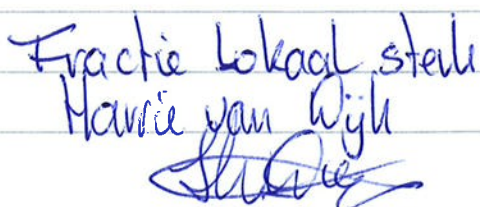 Fractie Lokaal sterk
Harrie van Wijk